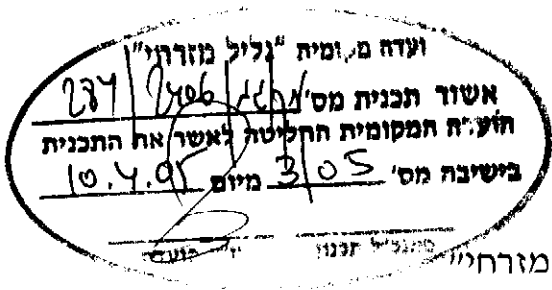 ועדה מקומית "גליל מזרחי"
אשור תכנית מס'
הועדה המקומית החליטה לאשר את התכנית
בישיבה מס' 3/05 מיום 10.4.95
סמנכ"ל תכנון יו"ר הועדה
מזרחי"